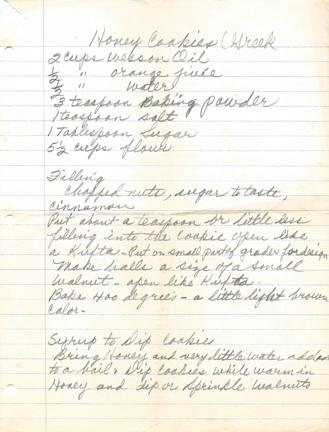 Honey Cookies (Greek
2 cups Wesson Oil
1/2 " orange juice
1/2 " water
3 teaspoon Baking powder
1 teaspoon salt
1 Tablespoon Sugar
5 1/2 cups flour
Filling
Chopped nuts, sugar to taste,
cinnamon
Put about a teaspoon or little less
filling into the cookie open like
a Kufta - Put on small part of grader for design
Make balls a size of a small
walnut - open like Kufta.
Bake 400 degrees - a little light brown
Color -
Syrup to Dip Cookies
Bring Honey and very little water added
to a boil & Dip Cookies while warm in
Honey and dip or sprinkle walnuts